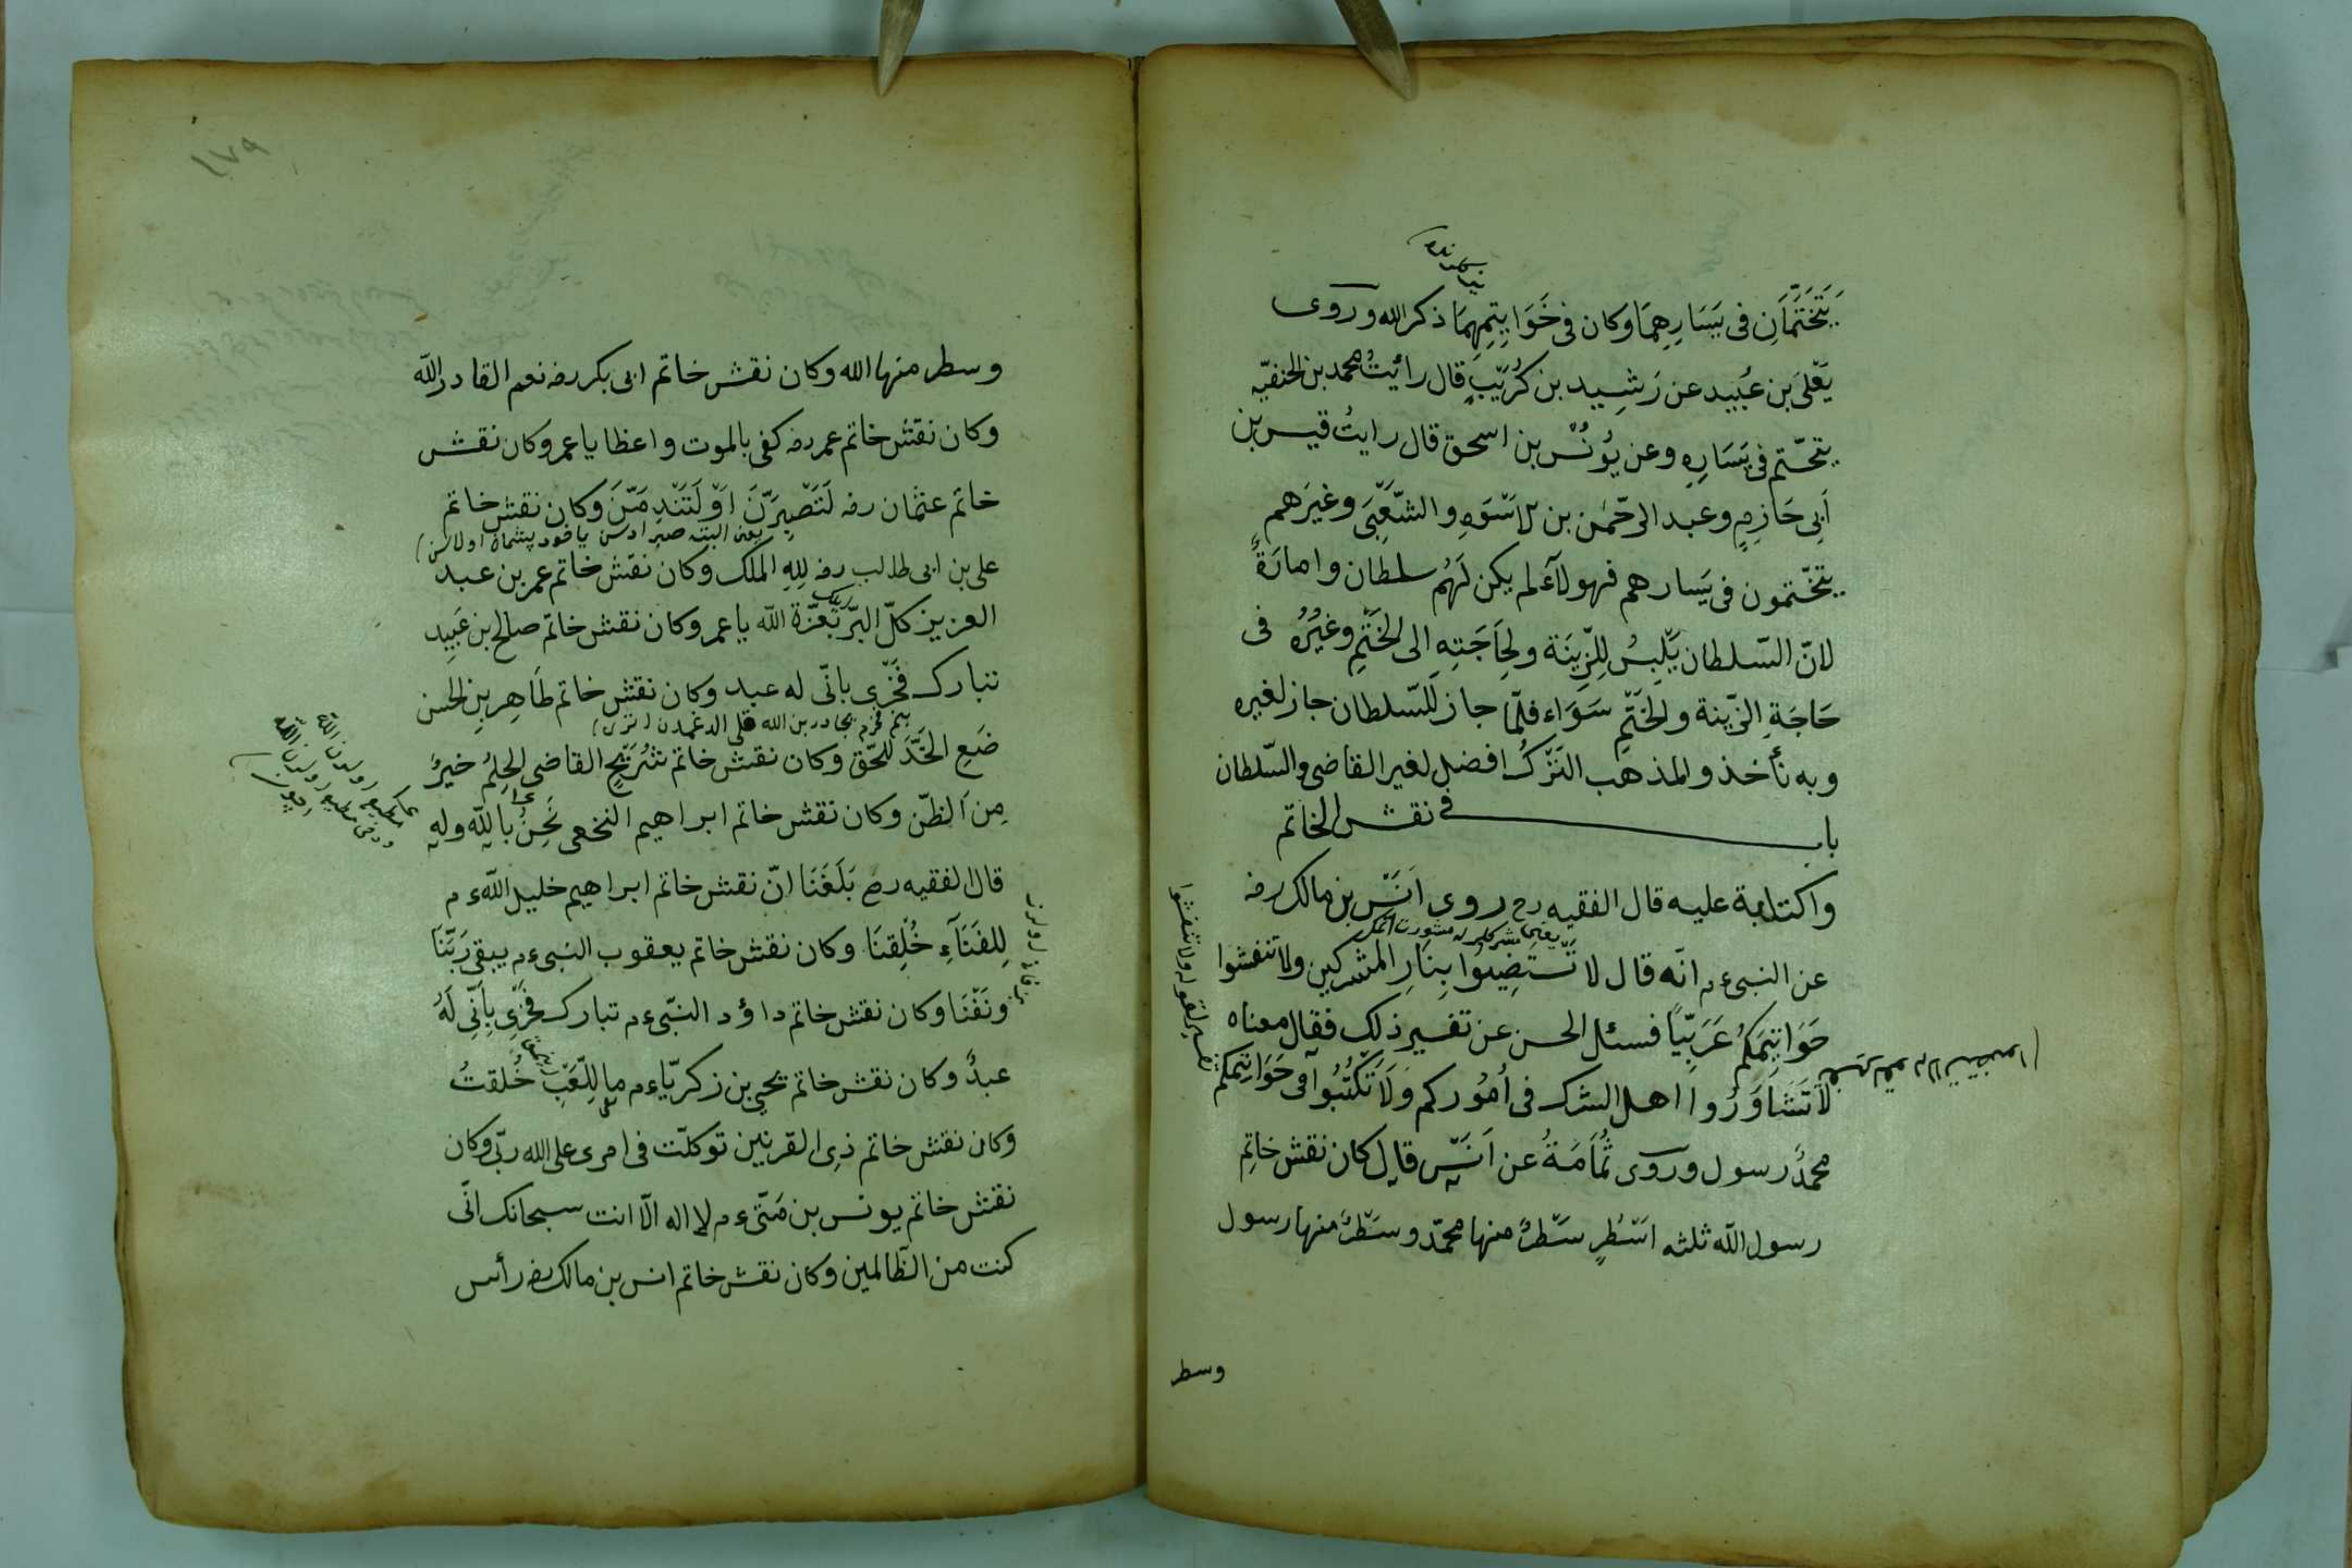 يَتَخَتَّمَانِ فى يَسَارِهِمَا وكان فى خَوَاتِيمِهِمَا ذكر الله وروى
يَعْلَى بن عُبَيد عن رَشِيد بن كُرَيْبٍ قال رائيتُ محمد بن الحنفيّه
يتختّم فى يَسَارِهِ وعن يُونُسْ بن اسحق قال رايتُ قيس بن
اَبِى حَازِمٍ وعبد الرحّمٰن بن الاَسْوَدِ والشّعْبِىَ وغيرَهم
يتختّمون فى يَسارهم فهولآء لم يكن لَهُم سلطان وامارَةٌ
لانّ السّلطان يَلْبِسُ لِلزّينَة ولِحَاجَتِهِ الى الخَتْمِ وغَيْرُهُ فى
حَاجَةِ الزّينة والخَتْمِ سَوَاء فلمّا جاز لَلسّلطان جاز لغيره
وبه نأخذ والمذهب التَرْكُ افضل لغير القاضى والسّلطان
باب فى نقش الخاتم
واكتابة عليه قال الفقيه رح روى اَنَسْ بن مالك رضه
عن النبىءم انّه قال لا تَسْتَضِيئُوا بِنَارِ المشركين ولا تنقشوا
خَوَاتِيمَكمُ عَرَبِيّاً فسئل الحسن عن تفسير ذلك فقال معناه
لاَ تَشَاوَرُوا اهل الشرك فى اُمُوركم وَلاَ تَكْتُبُوا فى خَوَاتِيمَكم
محمدٌ رسول وروى ثُمَامَةُ عن اَنَسٍ قال كان نقش خاتِم
رسول اللّه ثلثه اَسْطُرٍ سَطْرٌ منها محمّد وسَطْرٌ منها رسول
وسطر
١٧٩
وسطر منها الله وكان نقش خاتم ابى بكر رضه نعم القادر الله
وكان نقش خاتم عمر رضه كفى بالموت واعظا يا عمر وكان نقش
خاتم عثمان رضه لَتَصْبِرَنَّ اَوْ لَتَنْدِمَنَّ وكان نقش خاتم
على بن ابى طالب رضه لِلهِ الملك وكان نقش خاتم عمر بن عبد
العزيز كلّ البرّ بعّزّة اللّه يا عمر وكان نقش خاتم صالح بن عَبِيد
تبارك فَخْرِى بانّى له عبد وكان نقش خاتم طَاهِر بن الحسن
ضَعِ الخَدَّ للحّق وكان نقش خاتم شُرَيْحٍ القاضى الحِلْمُ خيرٌ
مِن اَلظنّ وكان نقش خاتم ابراهيم النخعى نَحْنُ باللّه وله
قال الفقيه رح بَلَغَنَا انّ نقش خاتم ابراهيم خليل اللّه ءم
لِلفَنَآءِ خُلِقنَا وكان نقش خاتم يعقوب النبىءم يبقى رَبّنَا
ونَفْنَا وكان نقش خاتم داؤد النّبىءم تبارك فَخْرِى بِاَنّى لَهُ
عبدٌ وكان نقش خاتم يحيى بن زكريّاءم ما لِلّعَبِ خُلقتُ
وكان نقش خاتم ذى القرنين توكلّت فى امرى على الله ربّى وكان
نقش خاتم يونس بن مَتّىءم لا اله الّا انت سبحانك انّى
كنت من الظّالمين وكان نقش خاتم انس بن مالك رضه رأس